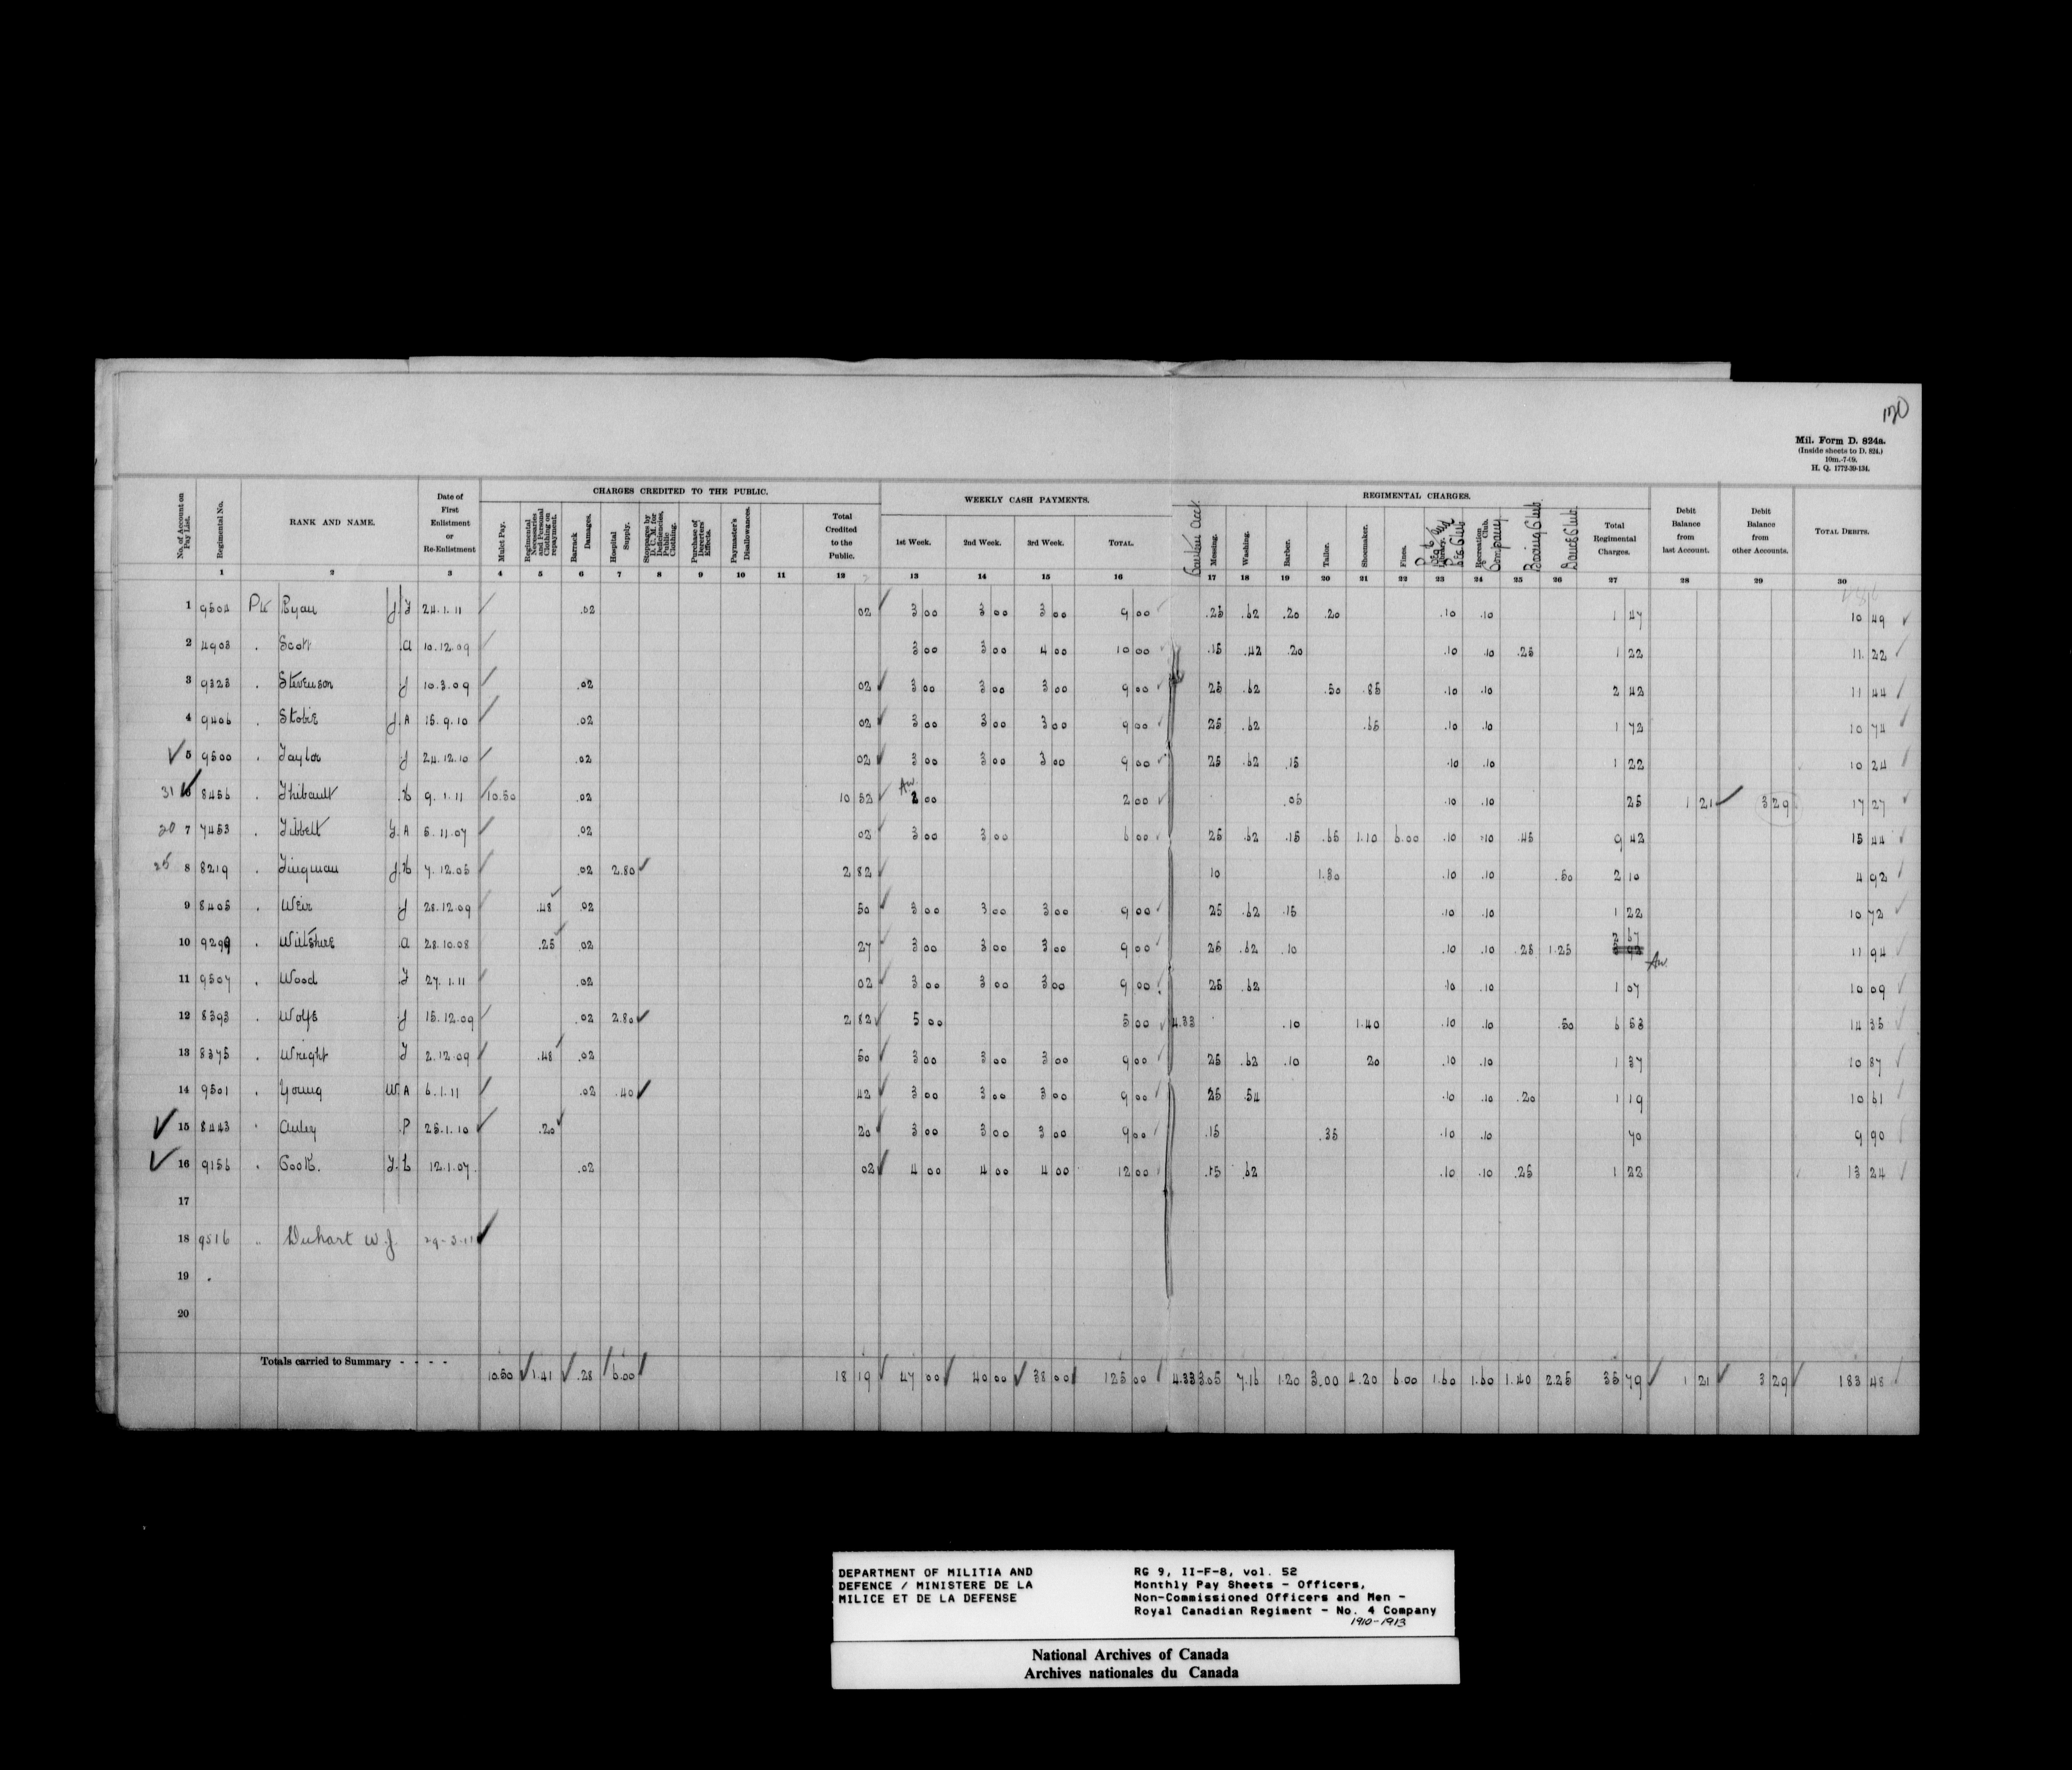 130
Mil. Form D. 824a.
(Inside sheets to D. 824.)
10m.-7-09.
H. Q. 1772-39-134.
No. of Account on Pay List. Regimental No. RANK AND NAME. Date of First Enlistment or Re-Enlistment CHARGES CREDITED TO THE PUBLIC. WEEKLY CASH PAYMENTS. REGIMENTAL CHARGES. Debit Balance from last Account. Debit Balance from other Accounts. TOTAL DEBITS.
Mulct Pay. Regimental Necessaries and Personal Clothing on repayment. Barrack Damages. Hospital Supply. Stoppages by D. C. M. for Deficiencies, Public Clothing. Purchase of Deserters' Effects. Paymaster's Disallowances. Total Credited to the Public. 1st Week. 2nd Week. 3rd Week. TOTAL. Canteen Acct. Messing. Washing. Barber. Tailor. Shoemaker. Fines. Library. Recreation Club. Company Boxing Club. Dance Club. Total Regimental Charges.
1 2 3 4 5 6 7 8 9 10 11 12 13 14 15 16 17 18 19 20 21 22 23 24 25 26 27 28 29 30
1 9504 Pte Ryan J. J 24.1.11 .02 02 3 00 3 00 3 00 9 00 .25 .62 .20 .20 .10 .10 1 47 10 49
2 4908 . Scott A 10.12.09 3 00 3 00 4 00 10 00 .15 .42 .20 .10 .10 .25 1 22 11.22
3 9323 . Stevenson J 10.3.09 .02 02 3 00 3 00 3 00 9 00 25 .62 .50 .85 .10 .10 2 42 11 44
4 9406 . Stobie J. A 15.9.10 .02 02 3 00 3 00 3 00 9 00 25 .62 .65 .10 .10 1 72 10 74
5 9500 . Taylor J 24.12.10 .02 02 3 00 3 00 3 00 9 00 25 .62 .15 .10 .10 1 22 10 24
31 6 8456 . Thibault H 9.1.11 10.50 .02 10 52 2 00 2 00 .05 .10 .10 25 1 21 3 29 17 27
20 7 7453 . Tibbett F. A 5.11.07 .02 02 3 00 3 00 6 00 25 .62 .15 .65 1.10 6.00 .10 .10 .45 9 42 15 44
25 8 8219 . Tingman J. H 7.12.05 .02 2.80 2 82 10 1.30 .10 .10 .50 2 10 4 92
9 8405 . Weir J 28.12.09 .48 .02 50 3 00 3 00 3 00 9 00 25 .62 .15 .10 .10 1 22 10 72
10 9299 . Willshire A 28.10.08 .25 .02 27 3 00 3 00 3 00 9 00 25 .62 .10 .10 .10 .25 1.25 2 67 11 94
11 9507 . Wood J 27.1.11 .02 02 3 00 3 00 3 00 9 00 25 .62 .10 .10 1 07 10 09
12 8393 . Wolfe J 15.12.09 .02 2.80 2 82 5 00 5 00 4.33 .10 1.40 .10 .10 .50 6 53 14 35
13 8375 . Wright J 2.12.09 .48 .02 50 3 00 3 00 3 00 9 00 25 .62 .10 20 .10 .10 1 37 10 87
14 9501 . Young W. A 6.1.11 .02 .40 42 3 00 3 00 3 00 9 00 25 .54 .10 .10 .20 1 19 10 61
15 8443 . Auley P 25.1.10 .20 20 3 00 3 00 3 00 9 00 .15 .35 .10 .10 70 9 90
16 9156 . Cook. F. L 12.1.07. .02 02 4 00 4 00 4 00 12 00 .15 .62 .10 .10 .25 1 22 13 24
17
18 9516 " Duhart W. J. 29-3-11
19
20
Totals carried to Summary - - - - 10.50 1.41 .28 6.00 18 19 47 00 40 00 38 00 125 00 4.33 3.05 7.16 1.20 3.00 4.20 6.00 1.60 1.60 1.40 2.25 35 79 1 21 3 29 183 48
DEPARTMENT OF MILITIA AND
DEFENCE / MINISTERE DE LA
MILICE ET DE LA DEFENSE
RG 9, II-F-8, vol. 52
Monthly Pay Sheets - Officers,
Non-Commissioned Officers and Men -
Royal Canadian Regiment - No. 4 Company
1910-1913
National Archives of Canada
Archives nationales du Canada